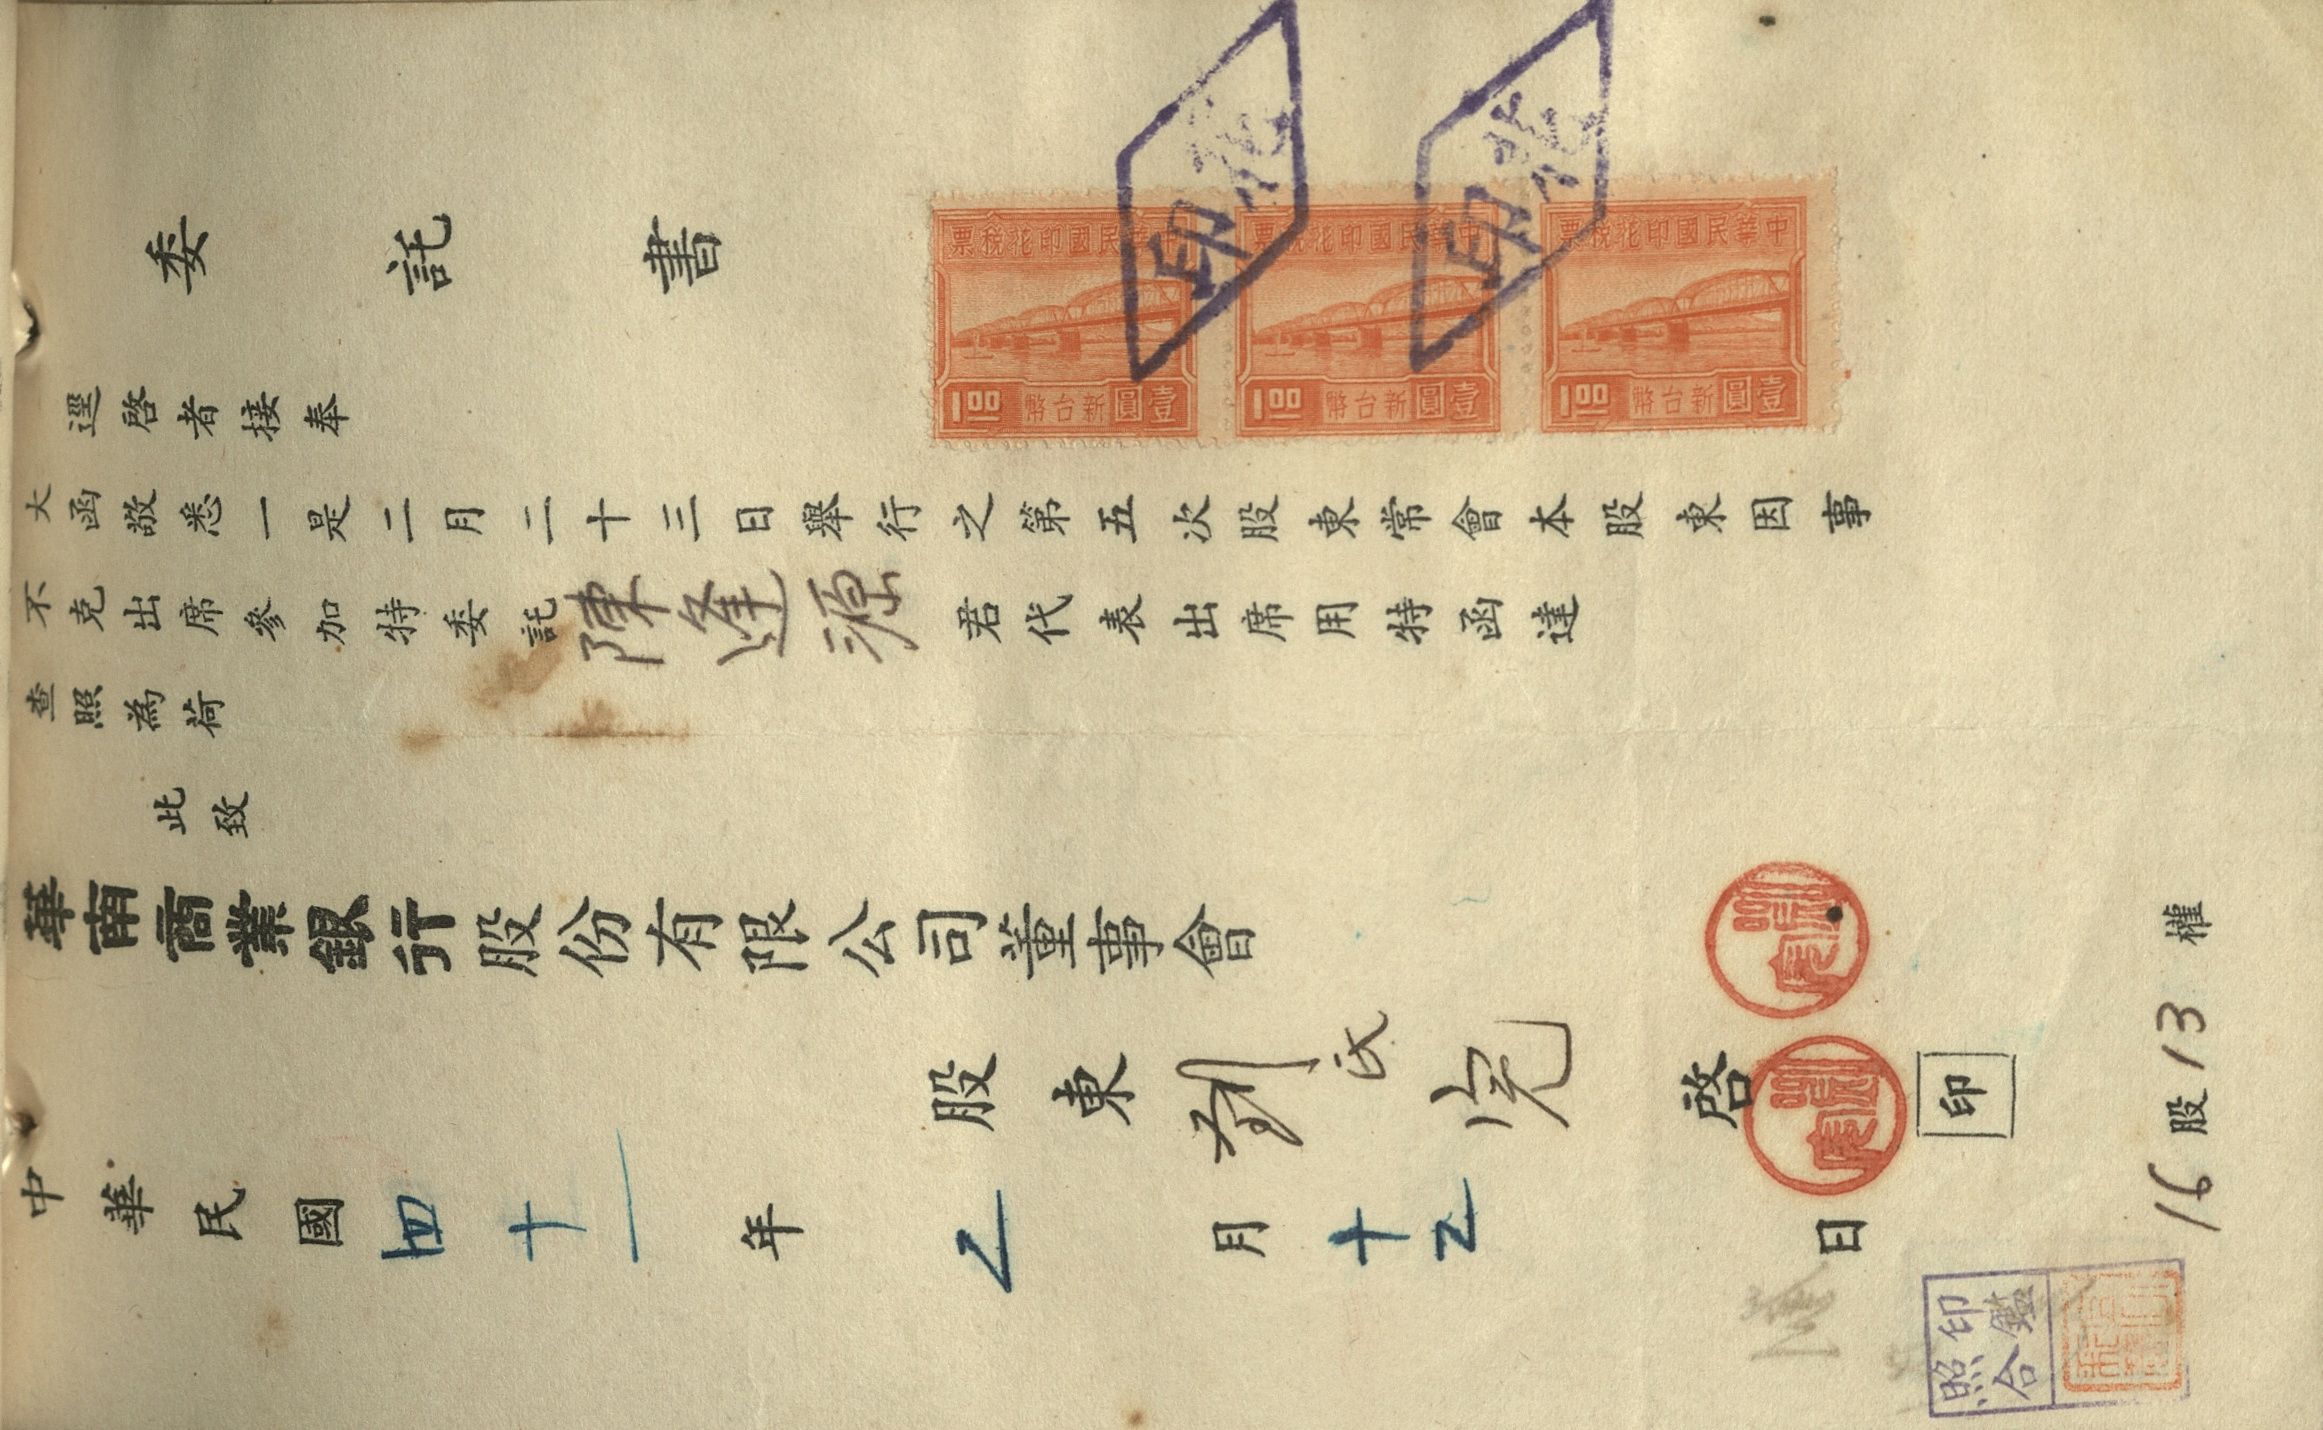 委託書
逕啓者接奉
大函敬悉一是二月二十三日舉行之第五次股東常會本股東因事
不克出席參加特委託陳逢源君代表出席用特函達
查照為荷
此致
華南商業銀行股份有限公司董事會
股東劉氏完啓
印
中華民國四十一年乙月十乙日
16股13權
中華民國印花稅票
1.00 新台幣 壹圓
中華民國印花稅票
1.00 新台幣 壹圓
中華民國印花稅票
1.00 新台幣 壹圓
印花
印花
印鑑
照合